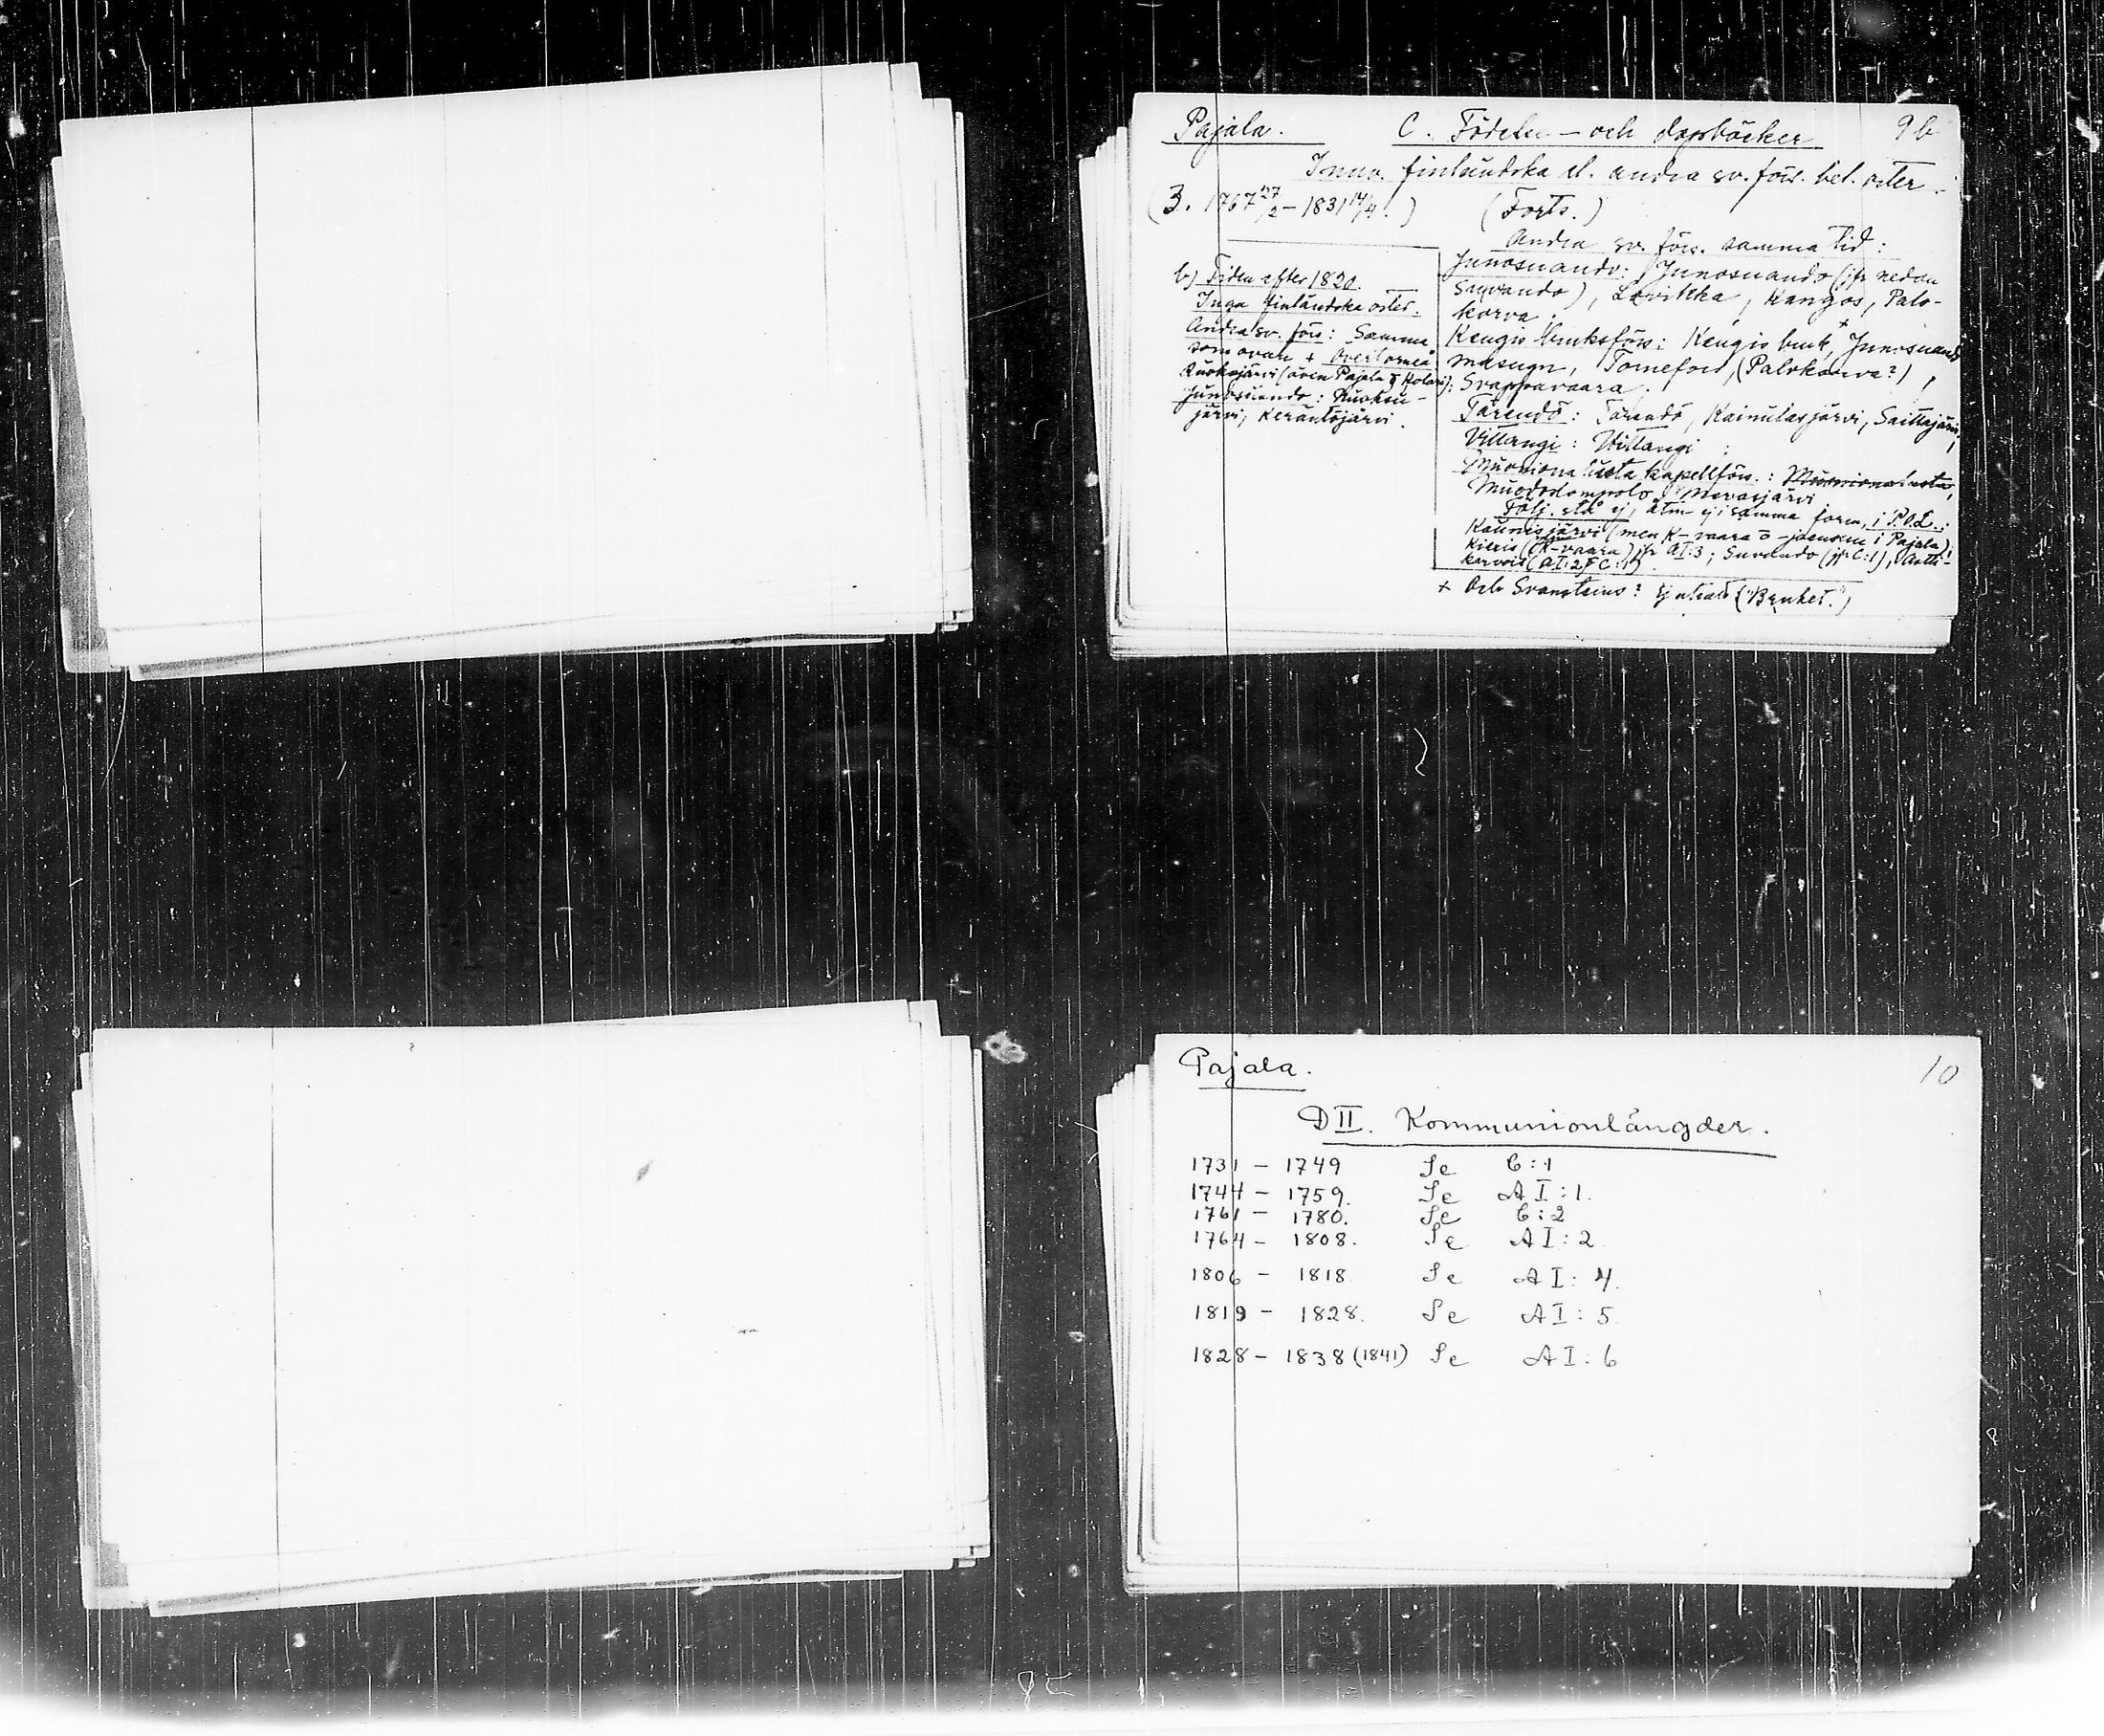 Pajala. C. Födelse- och dopböcker 9b
Innv. finländska el. andra sv. förs. bel. orter
(3. 1767 27/2 - 1831 14/4.) (Forts.)
b) Tiden efter 1820.
Inga finländska orter.
Andra sv. förs: Samma
som ovan + Övertorneå
Ruokojärvi (även Pajala o Kolari);
Junosuando: Muoksu-
järvi, Keräntöjärvi.
Andra sv. förs. samma tid:
Junosuando: Junosuando (jfr nedan
Suvando), Lovikka, Kangos, Palo-
korva.
Kengis bruksförs: Kengis bruk,+ Junosuando
masugn, Tornefors, (Palokorva?),
Svappavaara.
Tärendö: Tärendö, Kainulasjärvi, Saittajärvi,
Vittangi: Vittangi;
Muonionalusta kapellförs.: Muonionalusta,
Muodoslompolo, Merasjärvi
Följ. stå ej, åtm ej i samma form, i P.O.L.:
Kaunisjärvi (men K-vaara o -joensuu i Pajala),
Kieris (K-vaara) jfr AI:3; Suvando (jfr C:1),
karvois (AI:2, C:1).
+ Och Svansteins? Ej utsatt ("Bruket.")
Pajala. 10
DII. Kommunionlängder.
1731 - 1749 Se C:1
1744 - 1759. Se A I:1.
1761 - 1780. Se C:2
1764 - 1808. Se A I:2
1806 - 1818 Se A I: 4.
1819 - 1828. Se A I: 5
1828 - 1838 (1841) Se A I: 6